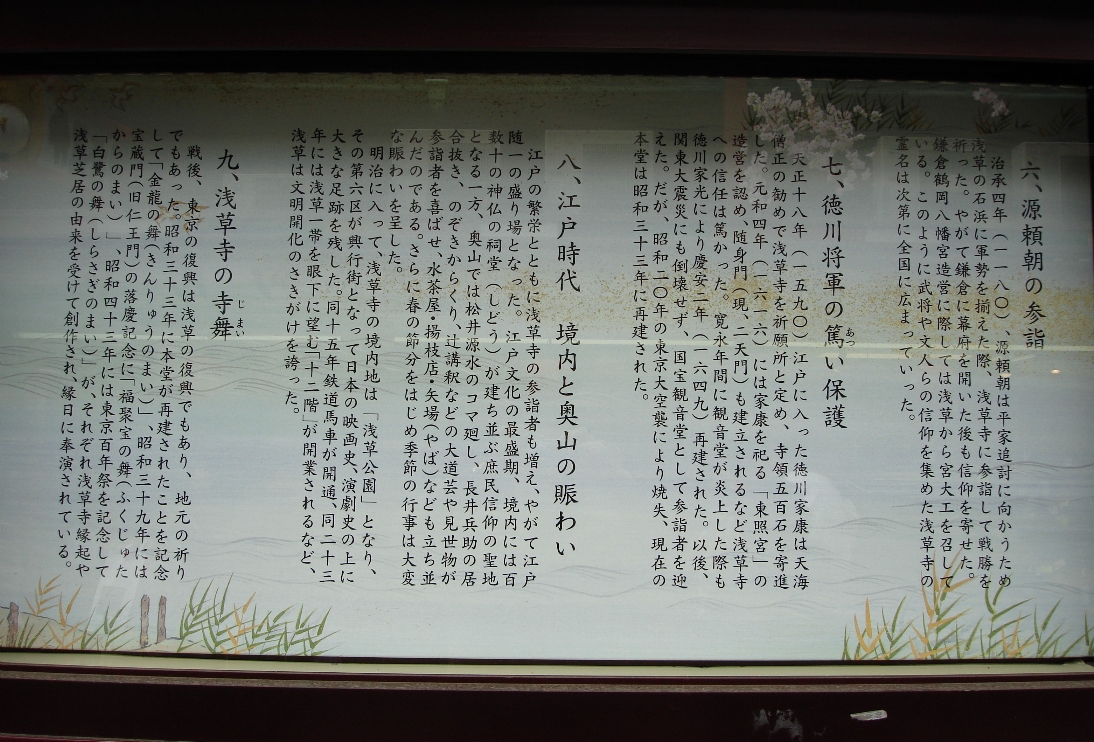 六、源頼朝の参詣
治承四年（一一八〇）、源頼朝は平家追討に向かうため
浅草の石浜に軍勢を揃えた際、浅草寺に参詣して戦勝を
祈った。やがて鎌倉に幕府を開いた後も信仰を寄せた。
鎌倉鶴岡八幡宮造営に際しては浅草から宮大工を召して
いる。このように武将や文人らの信仰を集めた浅草寺の
霊名は次第に全国に広まっていった。
七、徳川将軍の篤い保護
あつ
天正十八年（一五九〇）江戸に入った徳川家康は天海
僧正の勧めで浅草寺を祈願所と定め、寺領五百石を寄進
した。元和四年（一六一六）には家康を祀る「東照宮」の
造営を認め、随身門（現、二天門）も建立されるなど浅草寺
への信任は篤かった。寛永年間に観音堂が炎上した際も
徳川家光により慶安二年（一六四九）再建された。以後、
関東大震災にも倒壊せず、国宝観音堂として参詣者を迎
えた。だが、昭和二〇年の東京大空襲により焼失、現在の
本堂は昭和三十三年に再建された。
八、江戸時代　境内と奥山の賑わい
江戸の繁栄とともに浅草寺の参詣者も増え、やがて江戸
随一の盛り場となった。江戸文化の最盛期、境内には百
数十の神仏の祠堂（しどう）が建ち並ぶ庶民信仰の聖地
となる一方、奥山では松井源水のコマ廻し、長井兵助の居
合抜き、のぞきからくり、辻講釈などの大道芸や見世物が
参詣者を喜ばせ、水茶屋・揚枝店・矢場（やば）なども立ち並
んだのである。さらに春の節分をはじめ季節の行事は大変
な賑わいを呈した。
明治に入って、浅草寺の境内地は「浅草公園」となり、
その第六区が興行街となって日本の映画史、演劇史の上に
大きな足跡を残した。同十五年鉄道馬車が開通、同二十三
年には浅草一帯を眼下に望む「十二階」が開業されるなど、
浅草は文明開化のさきがけを誇った。
九、浅草寺の寺舞
じまい
戦後、東京の復興は浅草の復興でもあり、地元の祈り
でもあった。昭和三十三年に本堂が再建されたことを記念
して「金龍の舞（きんりゅうのまい）」、昭和三十九年には
宝蔵門（旧仁王門）の落慶記念に「福聚宝の舞（ふくじゅた
からのまい）」、昭和四十三年には東京百年祭を記念して
「白鷺の舞（しらさぎのまい）」が、それぞれ浅草寺縁起や
浅草芝居の由来を受けて創作され、縁日に奉演されている。